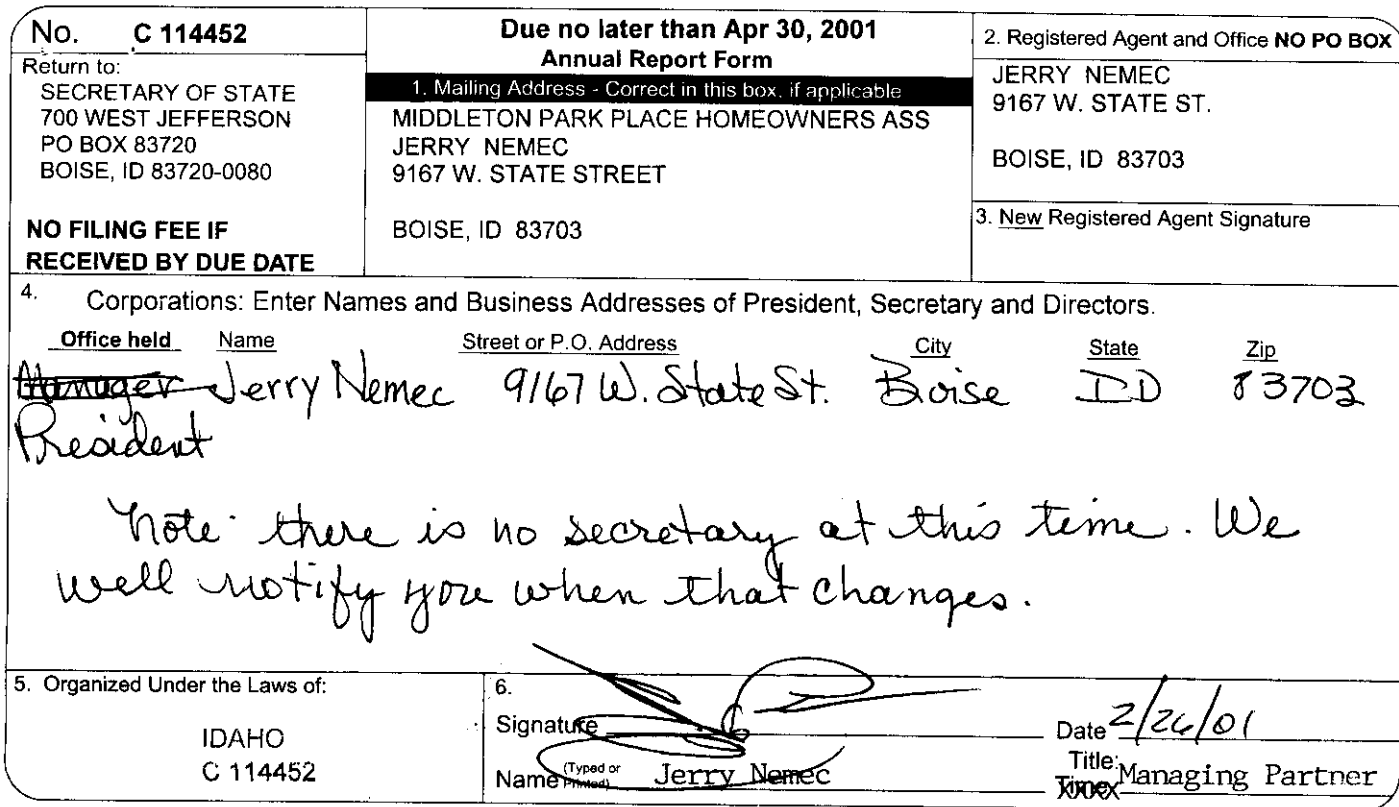 No. C 114452
Return to:
SECRETARY OF STATE
700 WEST JEFFERSON
PO BOX 83720
BOISE, ID 83720-0080
NO FILING FEE IF
RECEIVED BY DUE DATE
Due no later than Apr 30, 2001
Annual Report Form
1. Mailing Address - Correct in this box, if applicable
MIDDLETON PARK PLACE HOMEOWNERS ASS
JERRY NEMEC
9167 W. STATE STREET
BOISE, ID 83703
2. Registered Agent and Office NO PO BOX
JERRY NEMEC
9167 W. STATE ST.
BOISE, ID 83703
3. New Registered Agent Signature
4. Corporations: Enter Names and Business Addresses of President, Secretary and Directors.
Office held Name Street or P.O. Address City State Zip
Manager Jerry Nemec 9167 W. State St. Boise ID 83703
President
Note there is no secretary at this time. We
well notify you when that changes.
5. Organized Under the Laws of:
IDAHO
C 114452
6.
Signature
Date 2/26/01
Name (Typed or Printed) Jerry Nemec
Title: Managing Partner